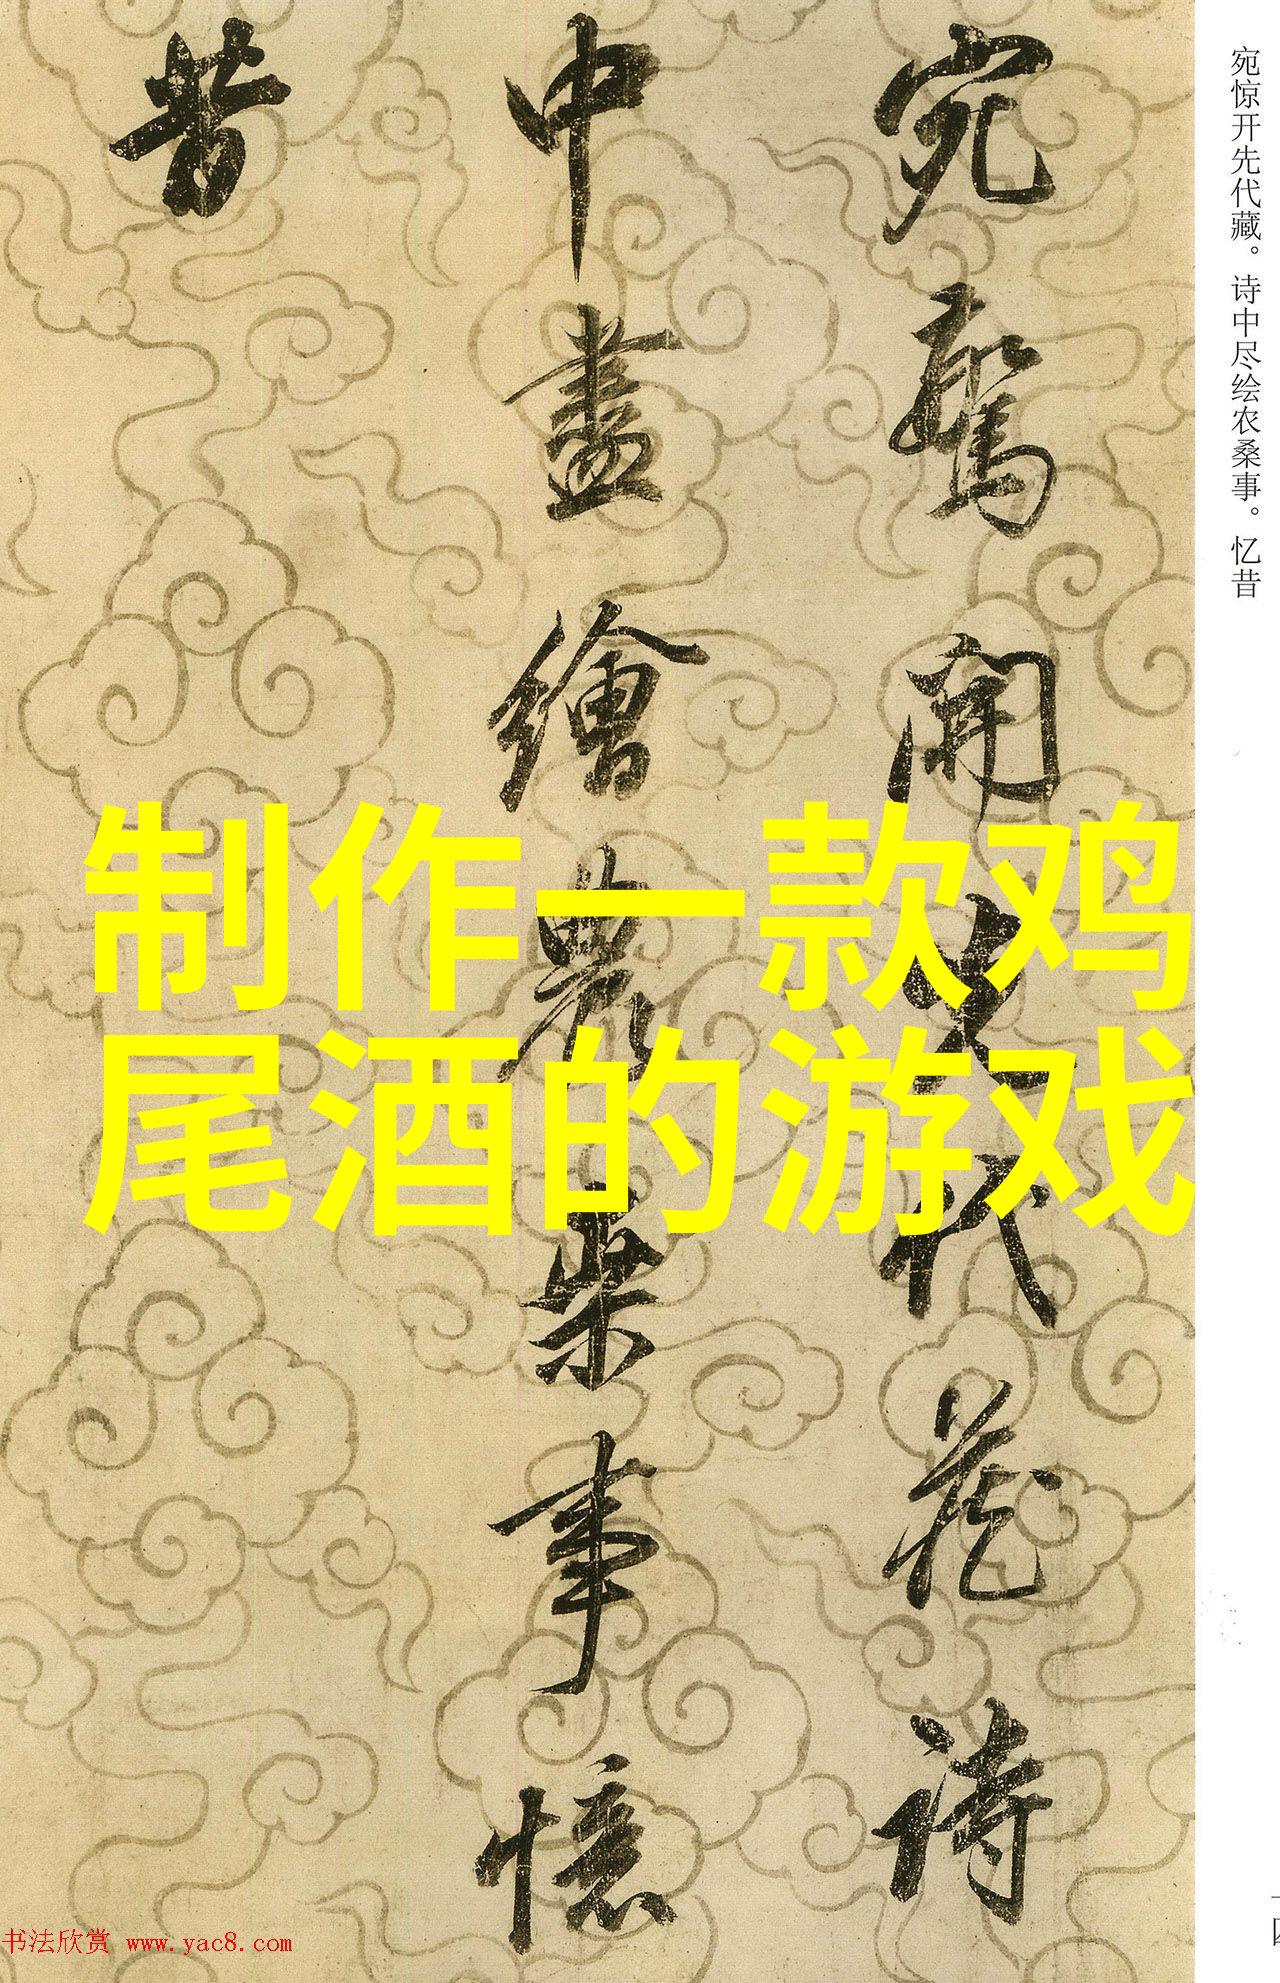 宛驚開先代藏詩
中盡繪農桒事憶
昔
宛惊开先代藏。诗中尽绘农桑事。忆昔
制作一款鸡
尾酒的游戏
书法欣赏 www.yac8.com